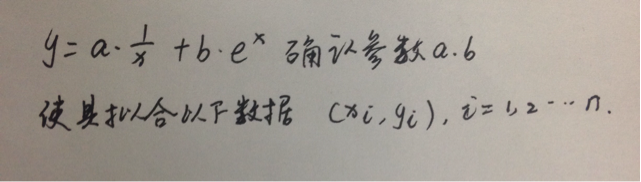 y = a·\frac{1}{x} + b·e^x 确认参数 a.b
使其拟合以下数据 (xi, yi), i=1,2…n.